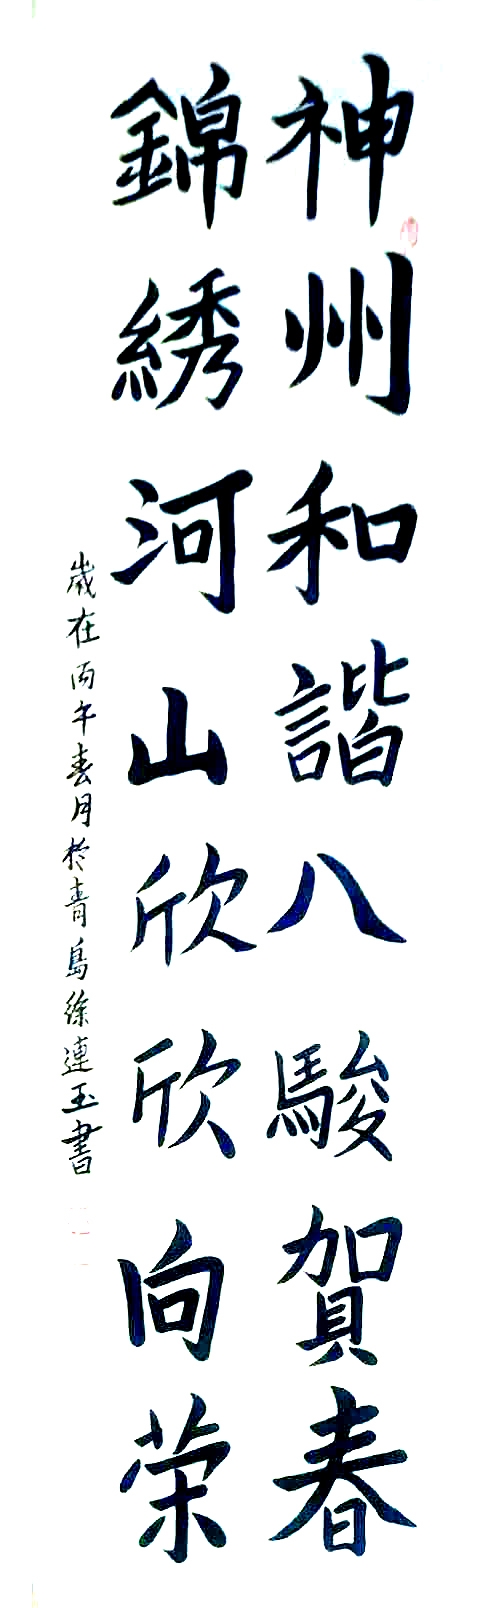 神州和諧八駿賀春
錦綉河山欣欣向荣
歲在丙午春月於青島徐連玉書